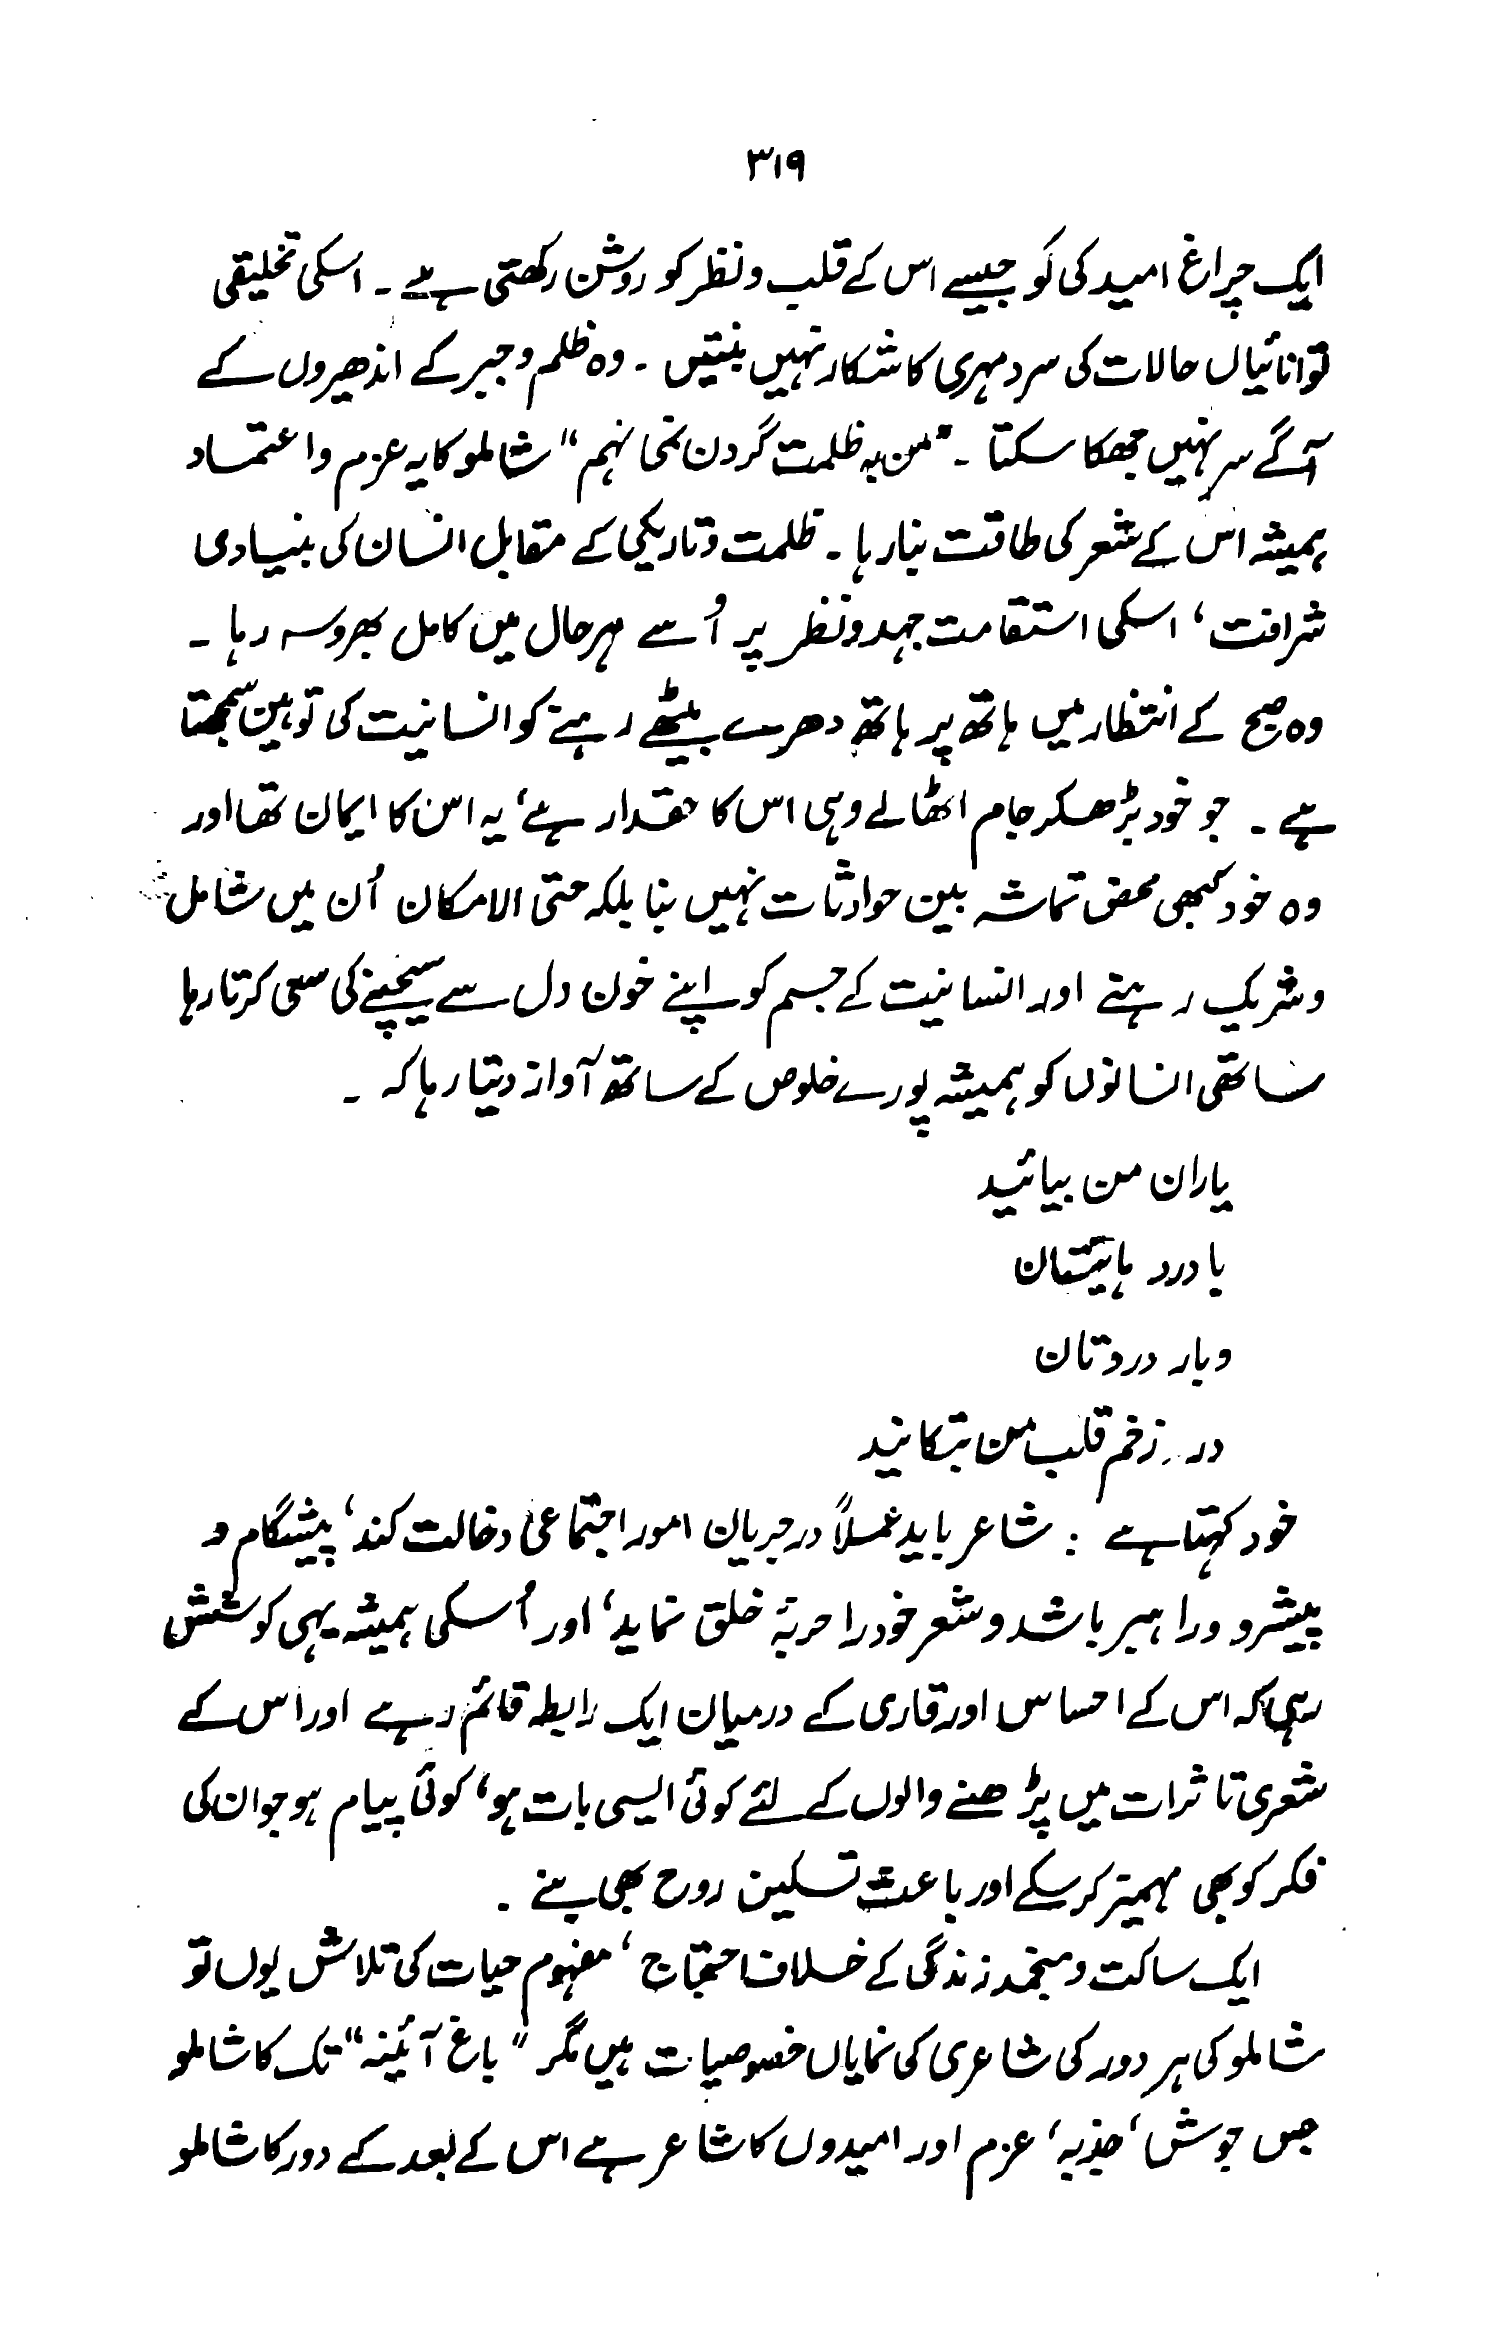 ۳۱۹
ایک چراغ امید کی لَو جیسے اس کے قلب و نظر کو روشن رکھتی ہے ۔ اسکی تخلیقی
توانائیاں حالات کی سرد مہری کا شکار نہیں بنتیں ۔ وہ ظلم و جبر کے اندھیروں کے
آگے سر نہیں جھکا سکتا ۔ "من بہ ظلمت گردن نمی نہم" شاملو کا یہ عزم و اعتماد
ہمیشہ اس کے شعر کی طاقت بنا رہا ۔ ظلمت و تاریکی کے مقابل انسان کی بنیادی
شرافت، اسکی استقامت جہد و نظر پر اُسے ہر حال میں کامل بھروسہ رہا ۔
وہ صبح کے انتظار میں ہاتھ پر ہاتھ دھرے بیٹھے رہنے کو انسانیت کی توہین سمجھتا
ہے ۔ جو خود بڑھکر جام اٹھالے وہی اس کا حقدار ہے، یہ اس کا ایمان تھا اور
وہ خود کبھی محض تماشہ بین حوادثات نہیں بنا بلکہ حتی الامکان اُن میں شامل
و شریک رہتے اور انسانیت کے جسم کو اپنے خون دل سے سینچنے کی سعی کرتا رہا
ساتھی انسانوں کو ہمیشہ پورے خلوص کے ساتھ آواز دیتا رہا کہ ۔
یاران من بیائید
با درد ہایتان
و بار دردتان
در زخم قلب من بتکانید
خود کہتا ہے : شاعر باید عملاً در جریان امور اجتماعی دخالت کند، پیشگام و
پیشرو و راہبر باشد و شعر خود را حربۂ خلق نماید، اور اُسکی ہمیشہ یہی کوشش
رہی کہ اس کے احساس اور قاری کے درمیان ایک رابطہ قائم رہے اور اس کے
شعری تاثرات میں پڑھنے والوں کے لئے کوئی ایسی بات ہو، کوئی پیام ہو جو ان کی
فکر کو بھی مہمیز کر سکے اور باعث تسکین روح بھی بنے ۔
ایک ساکت و منجمد زندگی کے خلاف احتجاج، مفہوم حیات کی تلاش یوں تو
شاملو کی ہر دور کی شاعری کی نمایاں خصوصیات ہیں مگر "باغ آئینہ" تک کا شاملو
جس جوش، جذبہ، عزم اور امیدوں کا شاعر ہے اس کے بعد کے دور کا شاملو